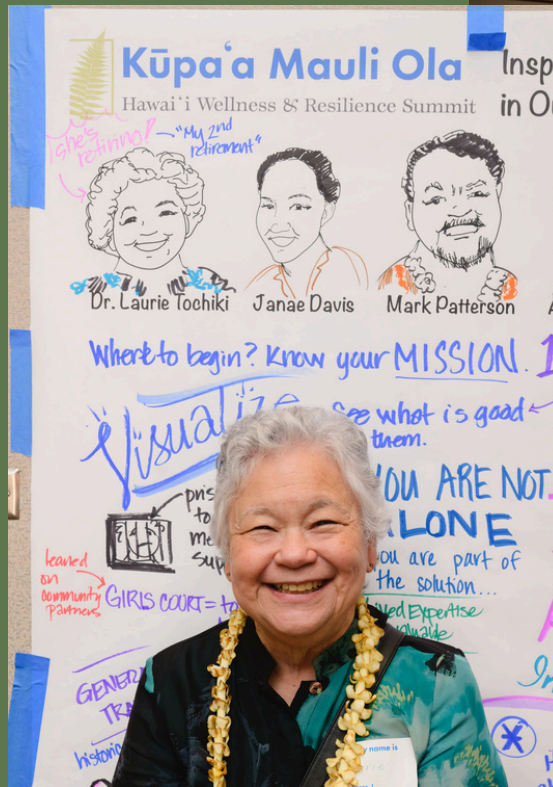 Kūpaʻa Mauli Ola
Hawaiʻi Wellness & Resilience Summit
Insp
in O
she's
retiring!
"My 2nd
retirement"
Dr. Laurie Tochiki
Janae Davis
Mark Patterson
Where to begin? Know your MISSION.
Visualize
See what is good
them.
YOU ARE NOT
ALONE
you are part of
the solution...
Lived Expertise
leaned
on
community
partners
GIRLS COURT =
GENER
TRA
historic
name is